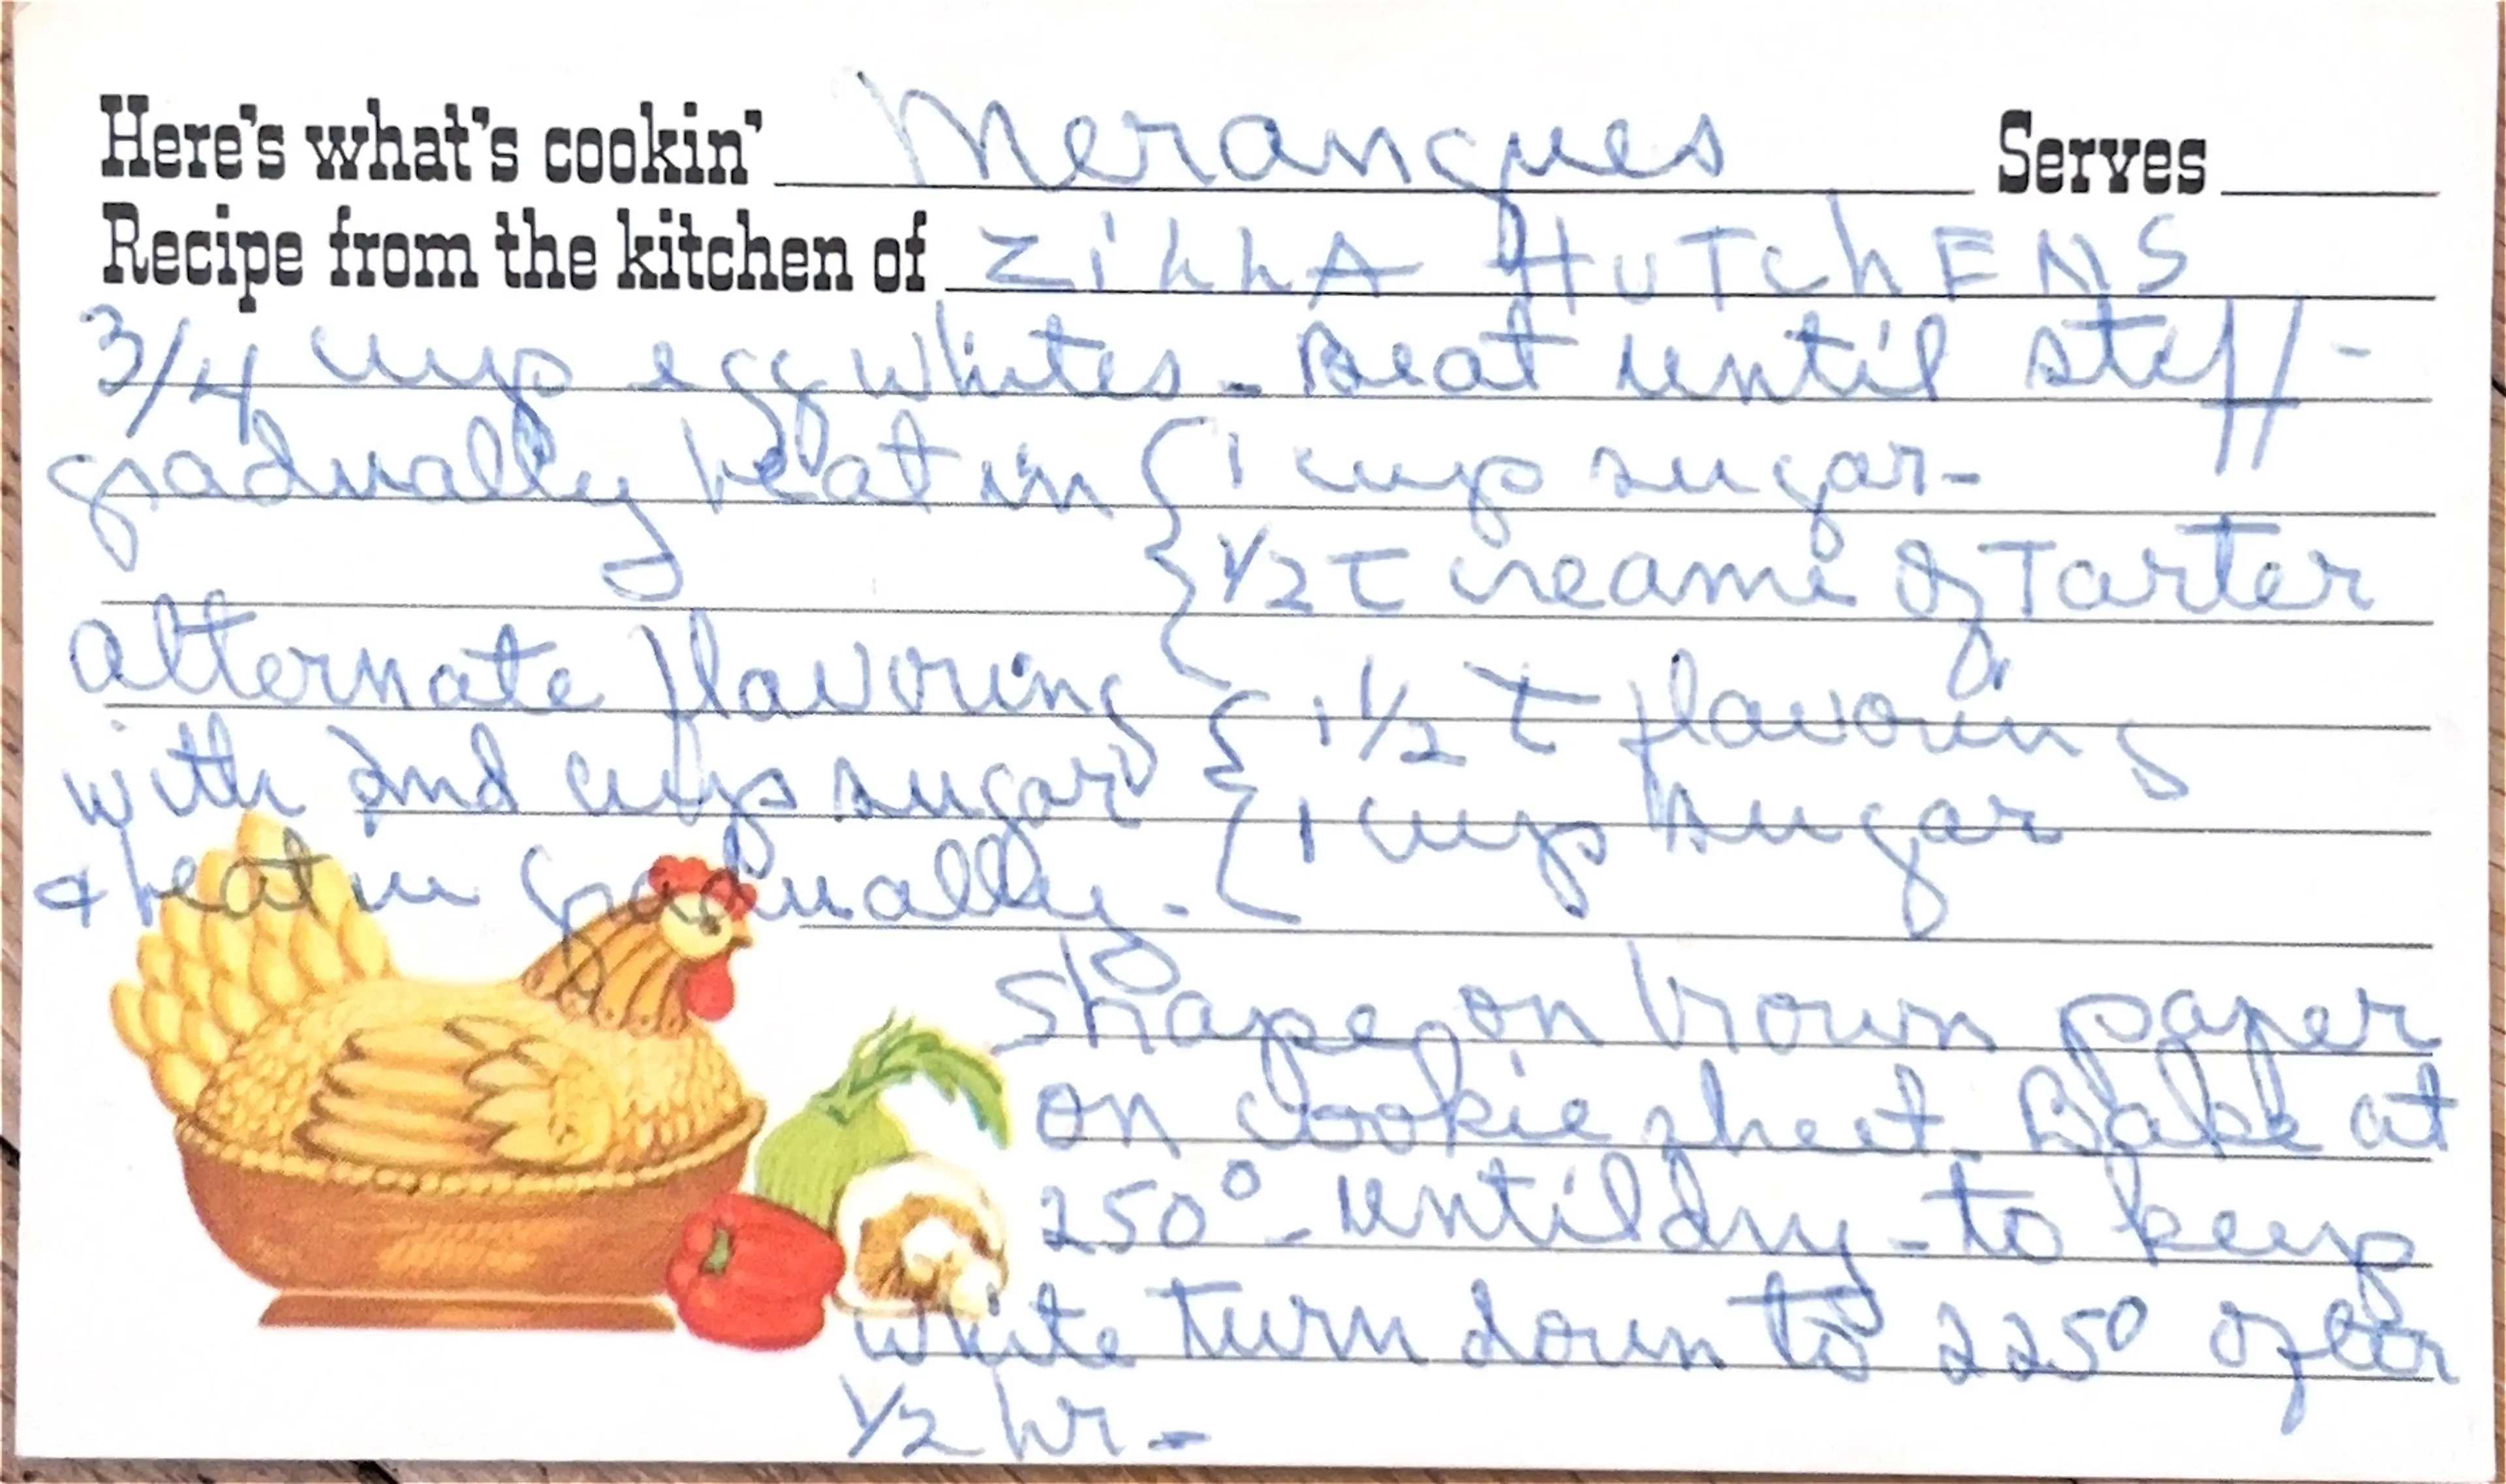 Here's what's cookin' Merangues Serves
Recipe from the kitchen of ZillA HUTchENS
3/4 cup egg whites - Beat until stiff -
gradually beat in { 1 cup sugar -
{ 1/2 t creame of Tarter
alternate flavoring { 1 1/2 t flavoring
with 2nd cup sugar { 1 cup sugar
& beat in gradually.-
Shape on brown paper
on cookie sheet. Bake at
250° - until dry - to keep
white turn down to 225° after
1/2 hr -